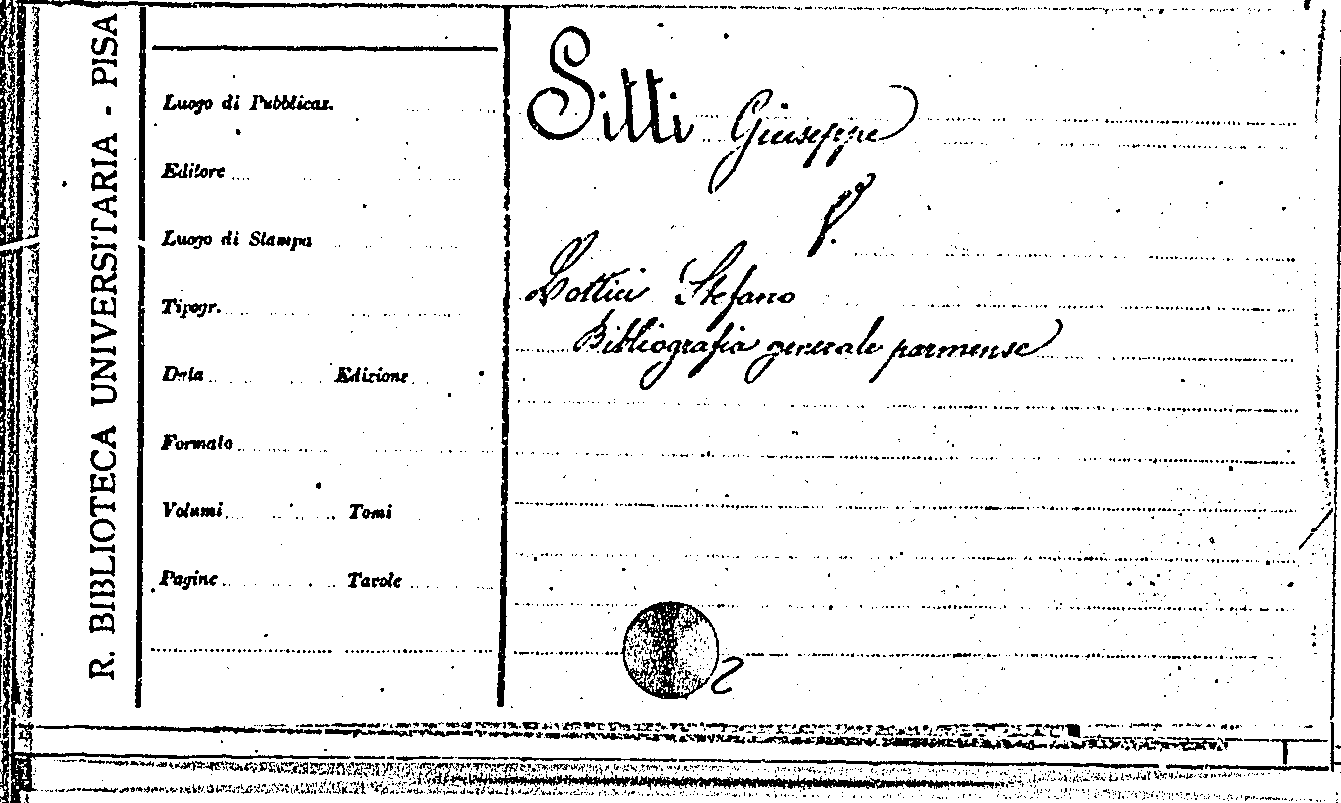 R. BIBLIOTECA UNIVERSITARIA - PISA
Luogo di Pubblicaz.
Editore
Luogo di Stampa
Tipogr.
Data Edizione
Formato
Volumi Tomi
Pagine Tavole
Sitti Giuseppe
V.
Lottici Stefano
Bibliografia generale parmense